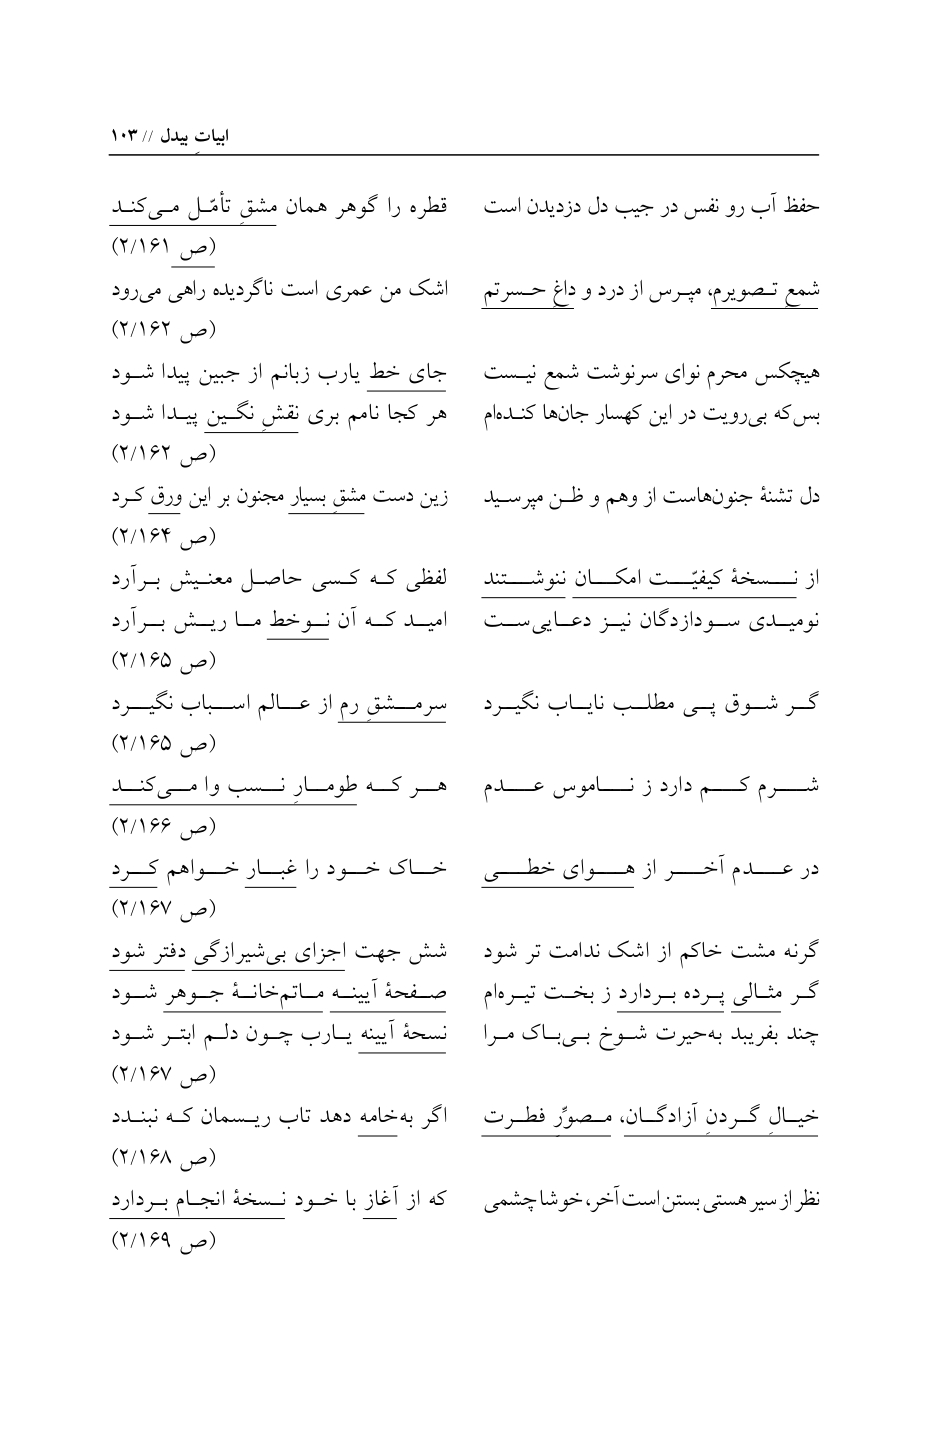 ابیاتِ بیدل // ۱۰۳
حفظ آب رو نفس در جیب دل دزدیدن است قطره را گوهر همان مشقِ تأمّل می‌کند
(ص ۲/۱۶۱)
شمعِ تصویرم، مپرس از درد و داغِ حسرتم اشک من عمری است ناگردیده راهی می‌رود
(ص ۲/۱۶۲)
هیچکس محرم نوای سرنوشت شمع نیست جای خط یارب زبانم از جبین پیدا شود
بس‌که بی‌رویت در این کهسار جان‌ها کنده‌ام هر کجا نامم بری نقشِ نگین پیدا شود
(ص ۲/۱۶۲)
دل تشنهٔ جنون‌هاست از وهم و ظن مپرسید زین دست مشقِ بسیار مجنون بر این ورق کرد
(ص ۲/۱۶۴)
از نسخهٔ کیفیّت امکان ننوشتند لفظی که کسی حاصل معنیش برآرد
نومیدی سودازدگان نیز دعایی‌ست امید که آن نوخط ما ریش برآرد
(ص ۲/۱۶۵)
گر شوق پی مطلب نایاب نگیرد سرمشقِ رم از عالم اسباب نگیرد
(ص ۲/۱۶۵)
شرم کم دارد ز ناموس عدم هر که طومارِ نسب وا می‌کند
(ص ۲/۱۶۶)
در عدم آخر از هوای خطی خاک خود را غبار خواهم کرد
(ص ۲/۱۶۷)
گرنه مشت خاکم از اشک ندامت تر شود شش جهت اجزای بی‌شیرازگی دفتر شود
گر مثالی پرده بردارد ز بخت تیره‌ام صفحهٔ آیینه ماتم‌خانهٔ جوهر شود
چند بفریبد به‌حیرت شوخ بی‌باک مرا نسخهٔ آیینه یارب چون دلم ابتر شود
(ص ۲/۱۶۷)
خیالِ گردنِ آزادگان، مصوِّرِ فطرت اگر به‌خامه دهد تاب ریسمان که نبندد
(ص ۲/۱۶۸)
نظر از سیر هستی بستن است آخر، خوشا چشمی که از آغاز با خود نسخهٔ انجام بردارد
(ص ۲/۱۶۹)